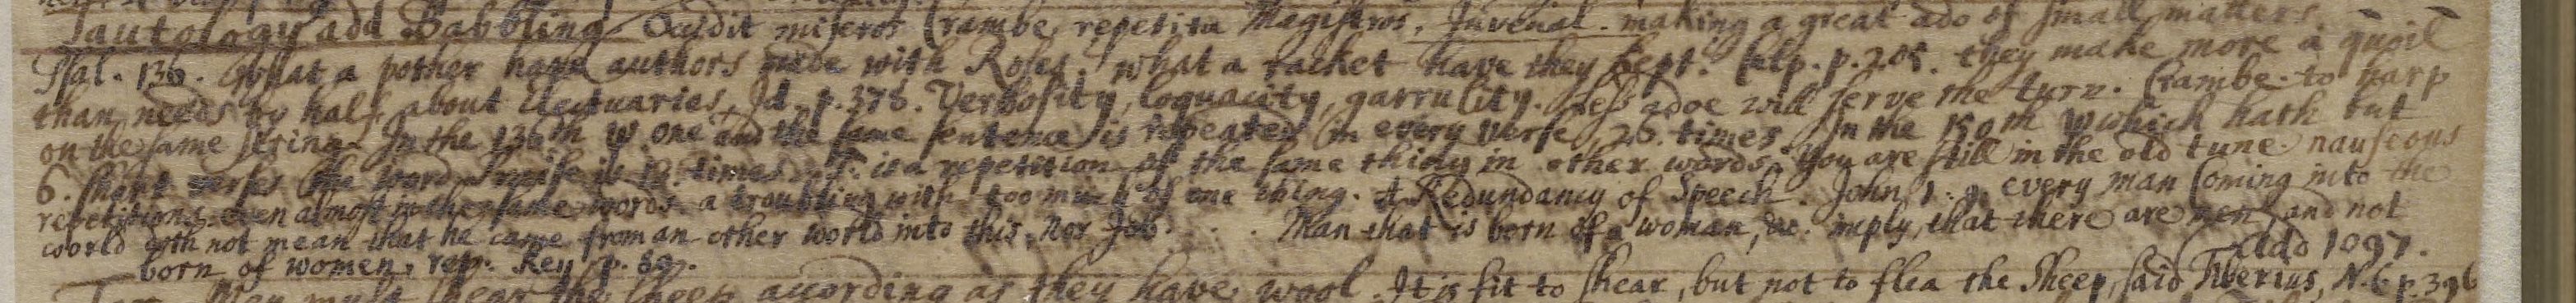 Tautology add Babbling. Occidit miseros Crambe repetita Magistros. Juvenal. making a great ado of small matters.
Psal. 136. What a pother have authors made with Roses! what a racket have they kept. Culp. p. 205. they make more a quoil
than needs by half about Electuaries, Id. p. 378. Verbosity, loquacity, garrulity. less adoe will serve the turn. Crambe. to harp
on the same string. In the 136th ψ. one and the same sentence is repeated in every verse, 26. times. In the 150th ψ which hath but
6. short verses the word Praise is 13. times. T. is a repetition of the same thing in other words. you are still in the old tune. nauseous
repetitions even almost in the same words. a troubling with too much of one thing. A Redundancy of Speech. John 1. 9. every man Coming into the
world doth not mean that he came from an other world into this. Nor Job. . . . Man that is born of a woman, &c. imply, that there are men and not
born of women, rep. Key p. 89. (add 1097.
Man must shear the sheep according as they have wool. It is fit to shear, but not to flea the Sheep, said Tiberius, N. C p. 396